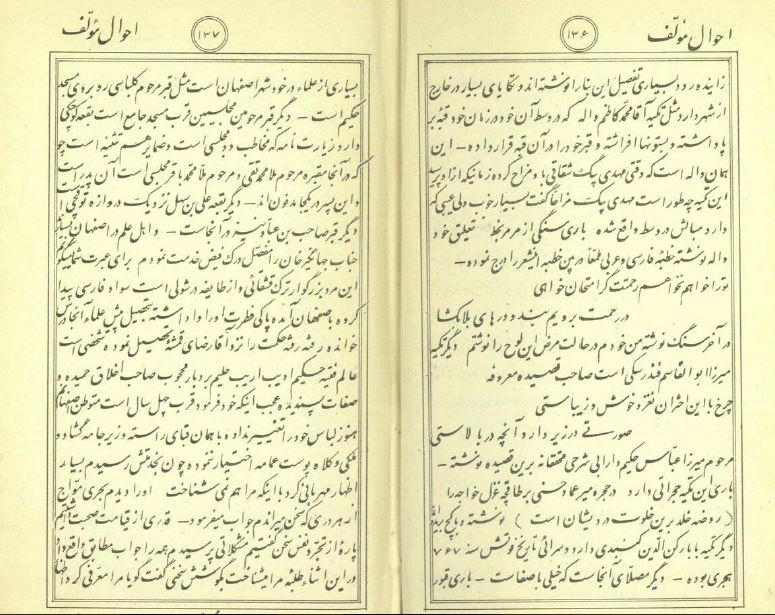 احوال مؤلف
۱۳۶
زاینده رود بسیاری تفصیل این بنا را نوشته اند و تکایای بسیار در خارج
از شهر دارد مثل تکیه آقا محمد کاظم واله که در وسط آن خود در زمان خود قبه بر
پا داشته و بستونها افراشته و قبر خود را در آن قبه قرار داده – این
همان واله است که وقتی مهدی بیک شقاقی با او مزاح کرده زمانیکه از او پرسید
این تکیه چه طور است مهدی بیک مزاحا گفت بسیار خوب ولی عیبی که
دارد مبالش در وسط واقع شده باری سنگی از مرمر بخط نستعلیق خود
واله نوشته خطبه فارسی و عربی ملمعا در بین خطبه این شعر را درج نموده –
تو را خواهم نخواهم رحمتت گر امتحان خواهی
در رحمت برویم بند و درهای بلا بگشا
در آخر سنگ نوشته من خودم در حالت مرض این لوح را نوشتم دیگر تکیه
میرزا ابو القاسم فندرسکی است صاحب قصیده معروفه
چرخ با این اختران نغز و خوش و زیباستی
صورتی در زیر دارد آنچه در بالاستی
مرحوم میرزا عباس حکیم دارابی شرحی محققانه برین قصیده نوشته –
باری این تکیه حجراتی دارد در حجره میر عماد حسنی بر طاقچه غزل خواجه را
( روضه خلد برین خلوت درویشان است ) نوشته و با گچ بریده
دیگر تکیه بابا رکن الدین گنبدی دارد و سرائی تاریخ فوتش سنه ۷۶۷
هجری بوده – دیگر مصلای آنجاست که خیلی با صفاست – باری قبور
احوال مؤلف
۱۳۷
بسیاری از علماء در خود شهر اصفهان است مثل قبر مرحوم کلباسی رو بروی مسجد
حکیم است – دیگر قبر مرحومین مجلسیین قرب مسجد جامع است بقعه کوچکی
دارد زیارت نامه که مخاطب دو مجلسی است و ضمایر هم تثنیه است چو
که در آنجا مقبره مرحوم ملا محمد تقی و مرحوم ملا محمد باقر مجلسی است آن پدر است
و این پسر در یکجا مدفون اند – دیگر بقعه علی بن سهل نزدیک دروازه توقچی
دیگر قبر صاحب بن عباد نیز در آنجاست – و اهل علم در اصفهان بسیار
جناب جهانگیر خان را مفصل درک فیض خدمت نمودم برای عبرت
این مرد بزرگوار ترک قشقائی و از طایفه دره شولی است سواد فارسی پیدا
کرده باصفهان آمده پاکی فطرت او را واداشته بتحصیل پیش علماء آنجا درس
خوانده رفته رفته حکمت را نزد آقا رضای قمشه تحصیل نموده شخصی است
عالم فقیه حکیم ادیب اریب حلیم بردبار محجوب صاحب اخلاق حمیده و
صفات پسندیده عجب اینکه خود فرمود قرب چهل سال است متوطن اصفهانم
هنوز لباس خود را تغییر نداده با همان قبای راسته و زیر جامه گشاد و
ملکی و کلاه پوست عمامه اختیار ننموده چون بخدمتش رسیدم بسیار
اظهار مهربانی کرد با اینکه مرا هم نمی شناخت او را دیدم بحری مواج
از هر دری که سخن میراندم جواب میفرمود – قدری از قیامت صحبت داشتیم
پاره از تجرد نفس سخن گفتیم مشکلاتی پرسیدم همه را جواب مطابق واقع داد
در این اثناء طلبه مرا میشناخت بگوشش سخنی گفت گویا مرا معرفی کرد